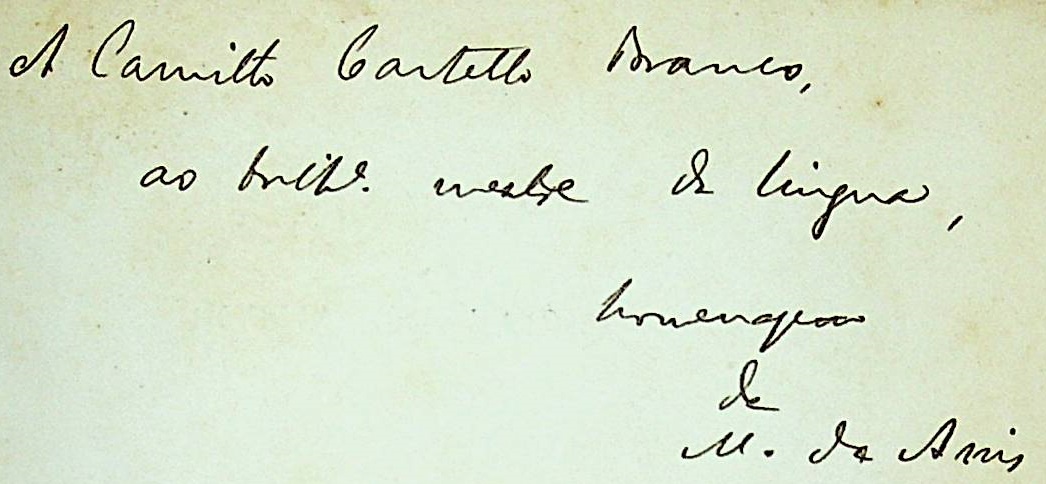 A Camillo Castello Branco,
ao brilhe. mestre da lingua,
homenagem
de
M. de Assis